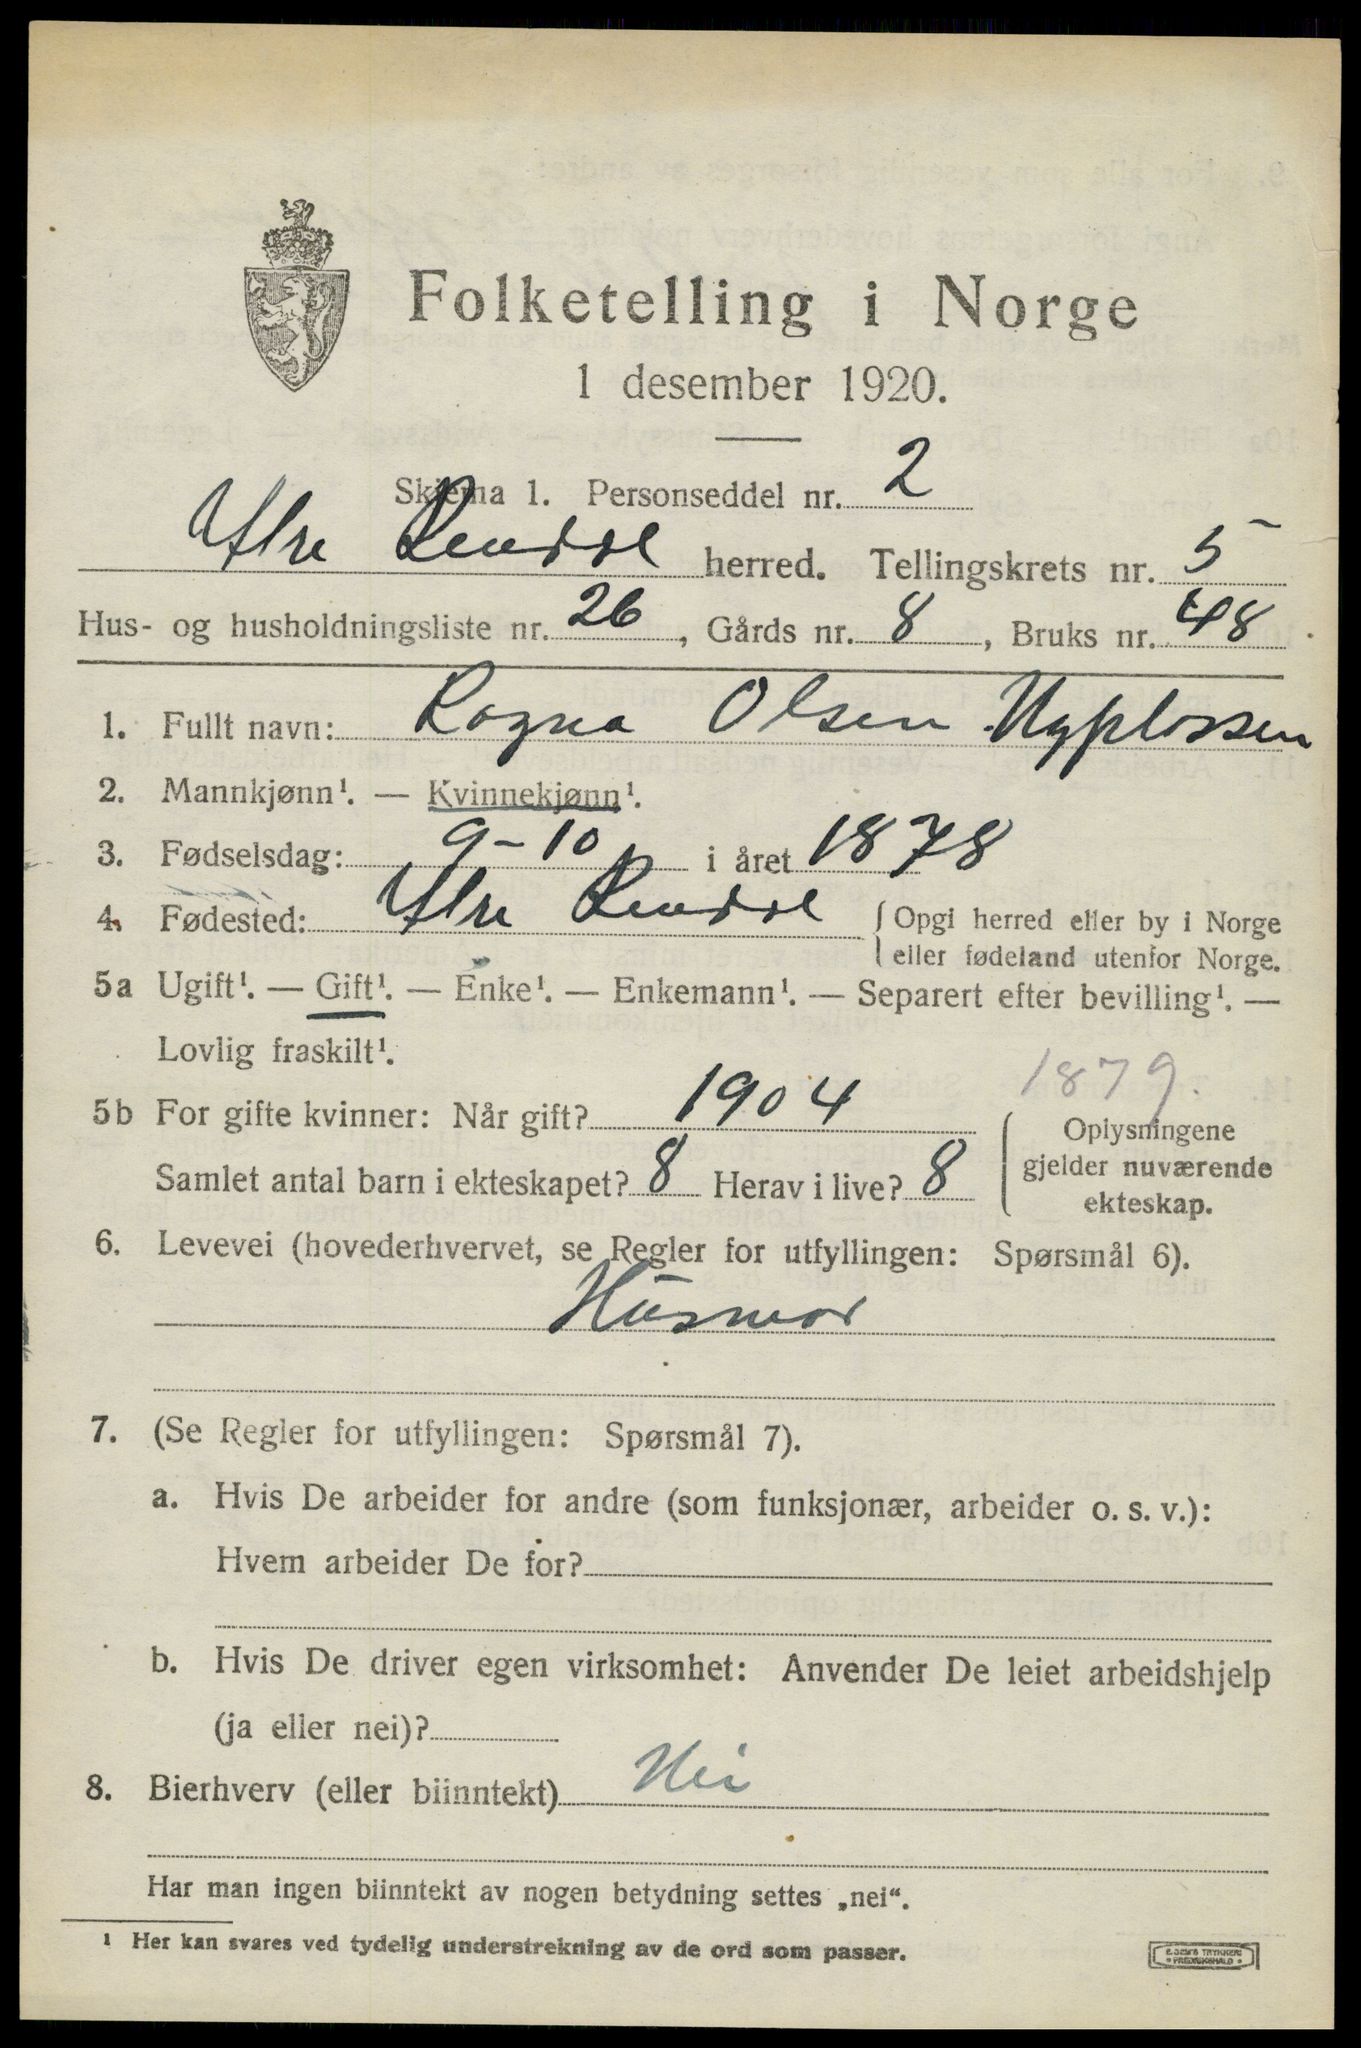 Folketelling i Norge
1 desember 1920.
Skjema 1. Personseddel nr. 2
Ytre Rendal herred. Tellingskrets nr. 5
Hus- og husholdningsliste nr. 26, Gårds nr. 8, Bruks nr. 48
1. Fullt navn: Ragna Olsen Nyplassen
2. Mannkjønn¹. — Kvinnekjønn¹.
3. Fødselsdag: 9-10 i året 1878
4. Fødested: Ytre Rendal {Opgi herred eller by i Norge
eller fødeland utenfor Norge.
5a Ugift¹. — Gift¹. — Enke¹. — Enkemann¹. — Separert efter bevilling¹. —
Lovlig fraskilt¹.
1879.
5b For gifte kvinner: Når gift? 1904
Samlet antal barn i ekteskapet? 8 Herav i live? 8
{Oplysningene
gjelder nuværende
ekteskap.
6. Levevei (hovederhvervet, se Regler for utfyllingen: Spørsmål 6).
Husmor
7. (Se Regler for utfyllingen: Spørsmål 7).
a. Hvis De arbeider for andre (som funksjonær, arbeider o. s. v.):
Hvem arbeider De for?
b. Hvis De driver egen virksomhet: Anvender De leiet arbeidshjelp
(ja eller nei)?
8. Bierhverv (eller biinntekt) Nei
Har man ingen biinntekt av nogen betydning settes „nei“.
¹ Her kan svares ved tydelig understrekning av de ord som passer.